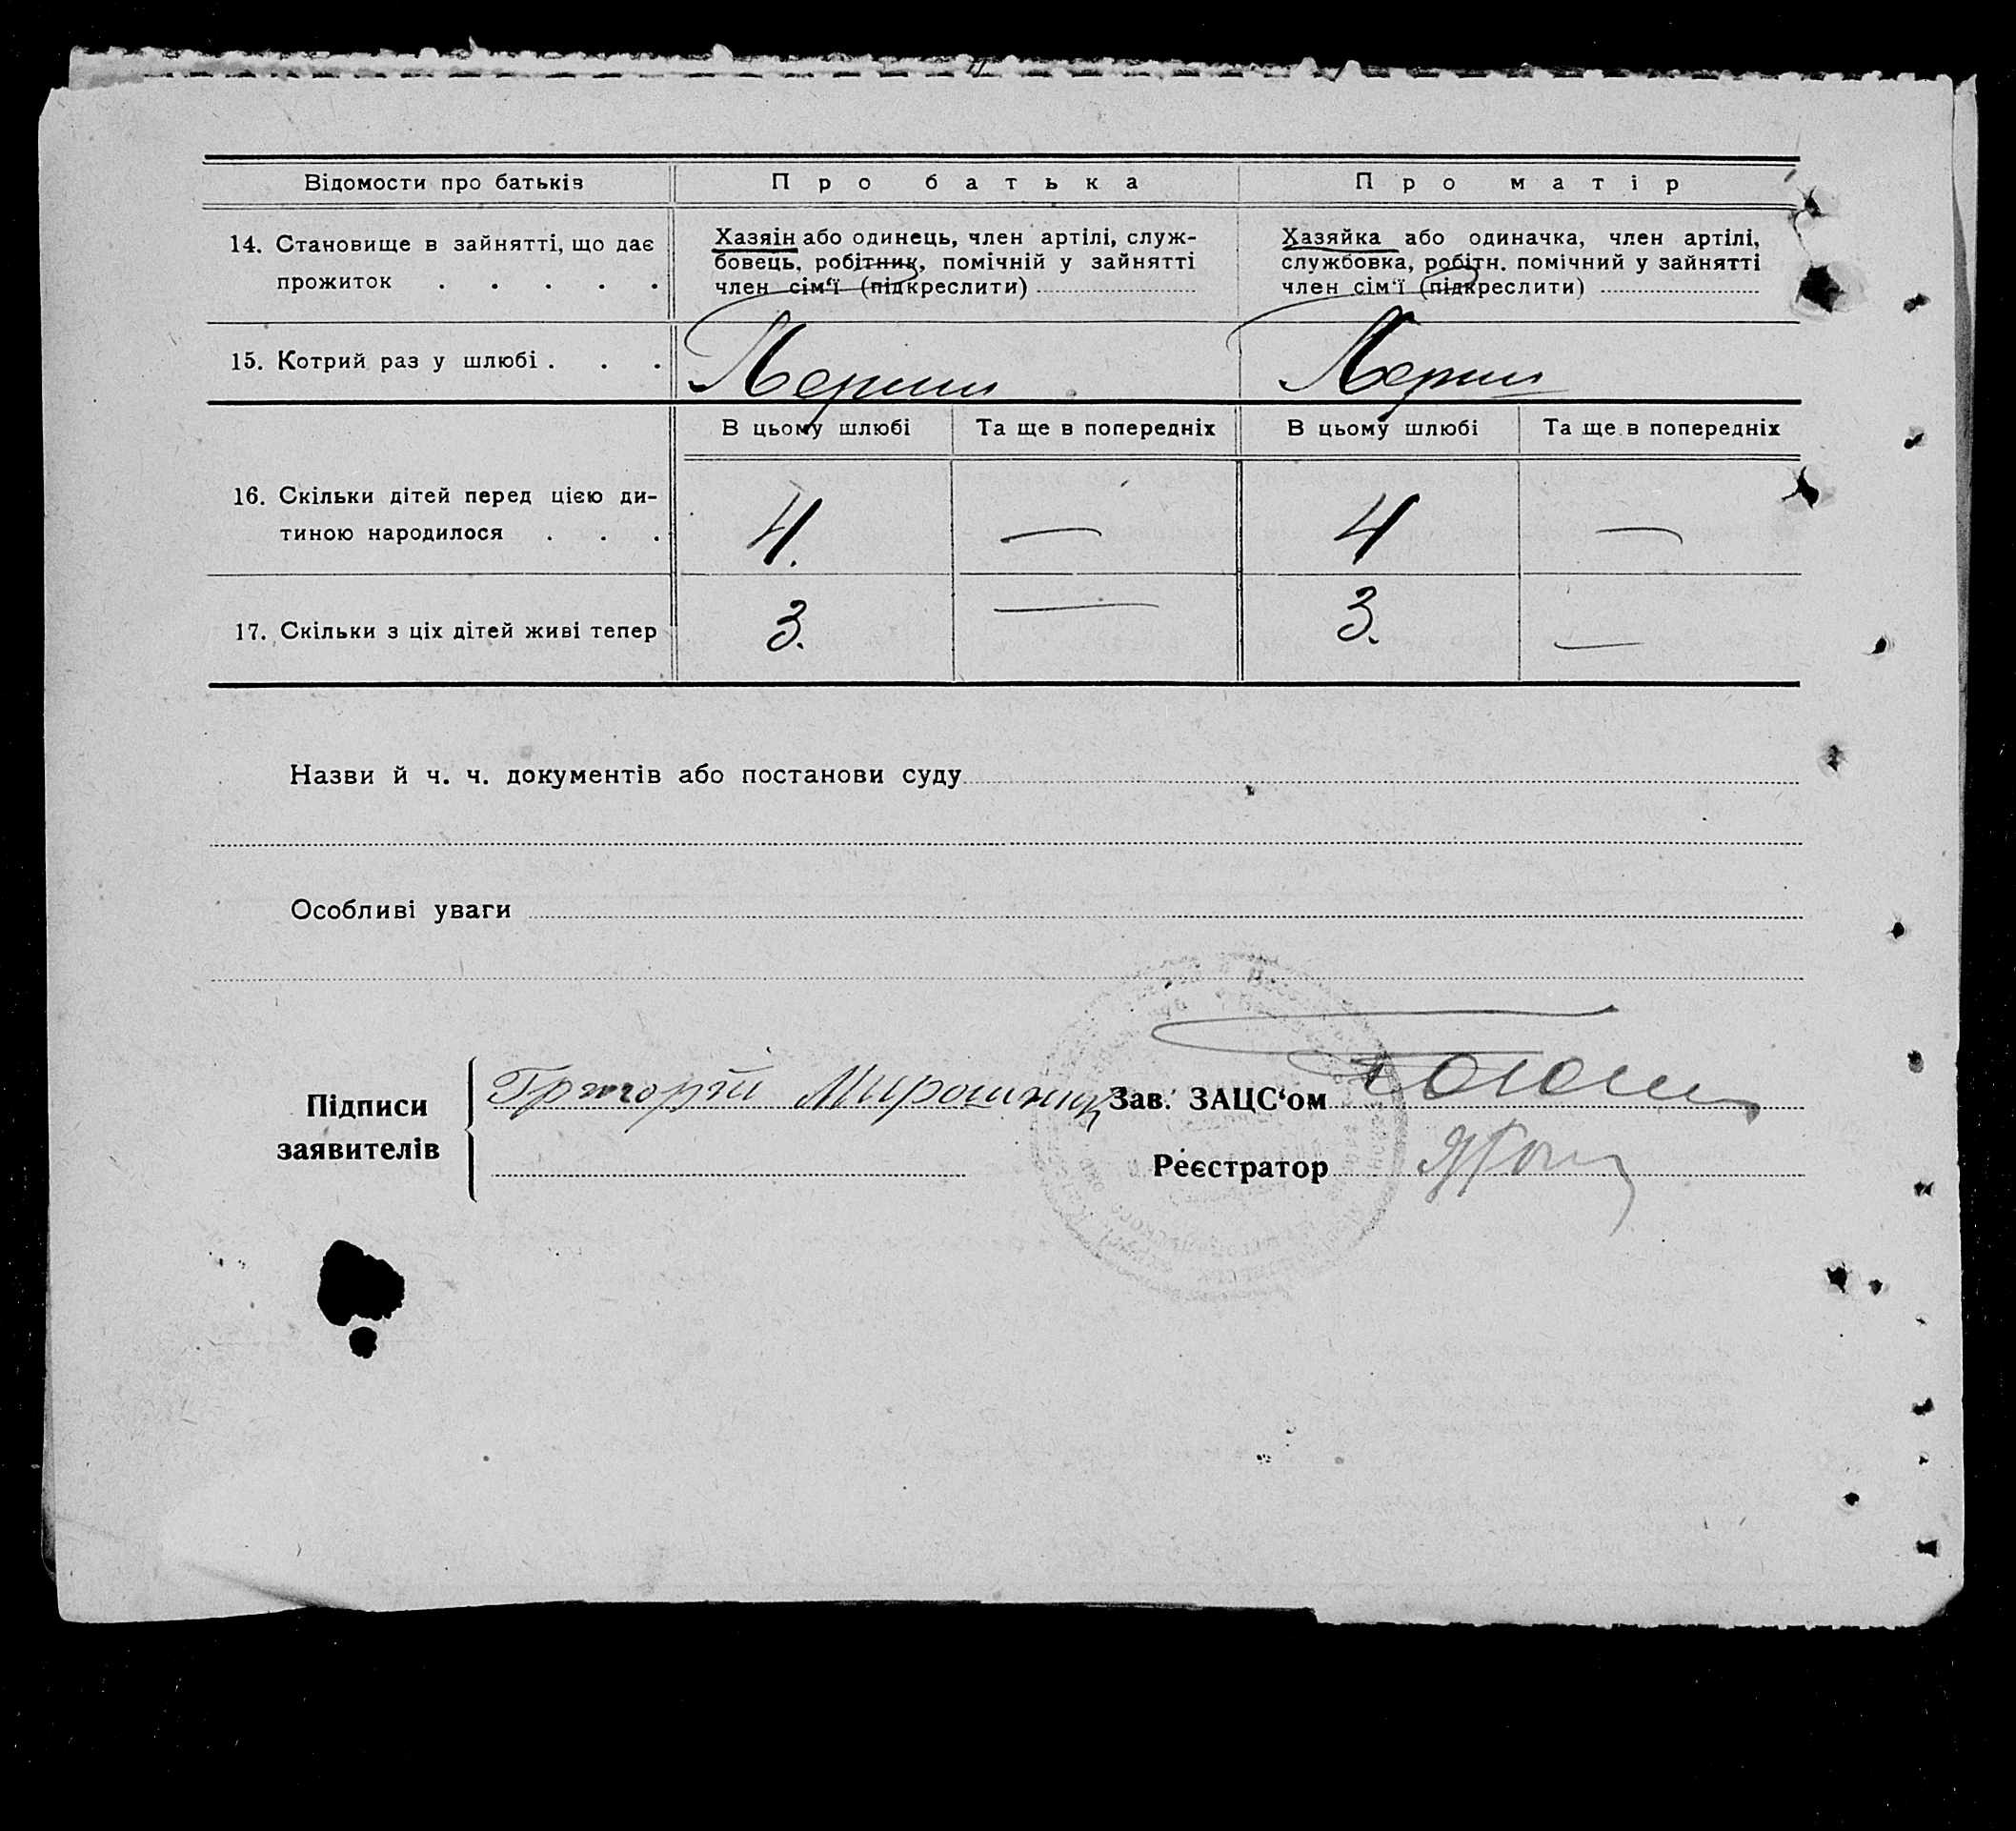 Відомости про батьків
Про батька
Про матір
14. Становище в зайнятті, що дає
прожиток . . . . .
Хазяін або одинець, член артілі, служ-
бовець, робітник, помічній у зайнятті
член сім‘ї (підкреслити)
Хазяйка або одиначка, член артілі,
службовка, робітн. помічний у зайнятті
член сім‘ї (підкреслити)
15. Котрий раз у шлюбі . . .
Перший
Перший
В цьому шлюбі
Та ще в попередніх
В цьому шлюбі
Та ще в попередніх
16. Скільки дітей перед цією ди-
тиною народилося . . .
4. — 4 —
17. Скільки з ціх дітей живі тепер
3. — 3. —
Назви й ч. ч. документів або постанови суду
Особливі уваги
Підписи
заявителів
Григорій Мирошник
Зав. ЗАЦС‘ом
Реєстратор